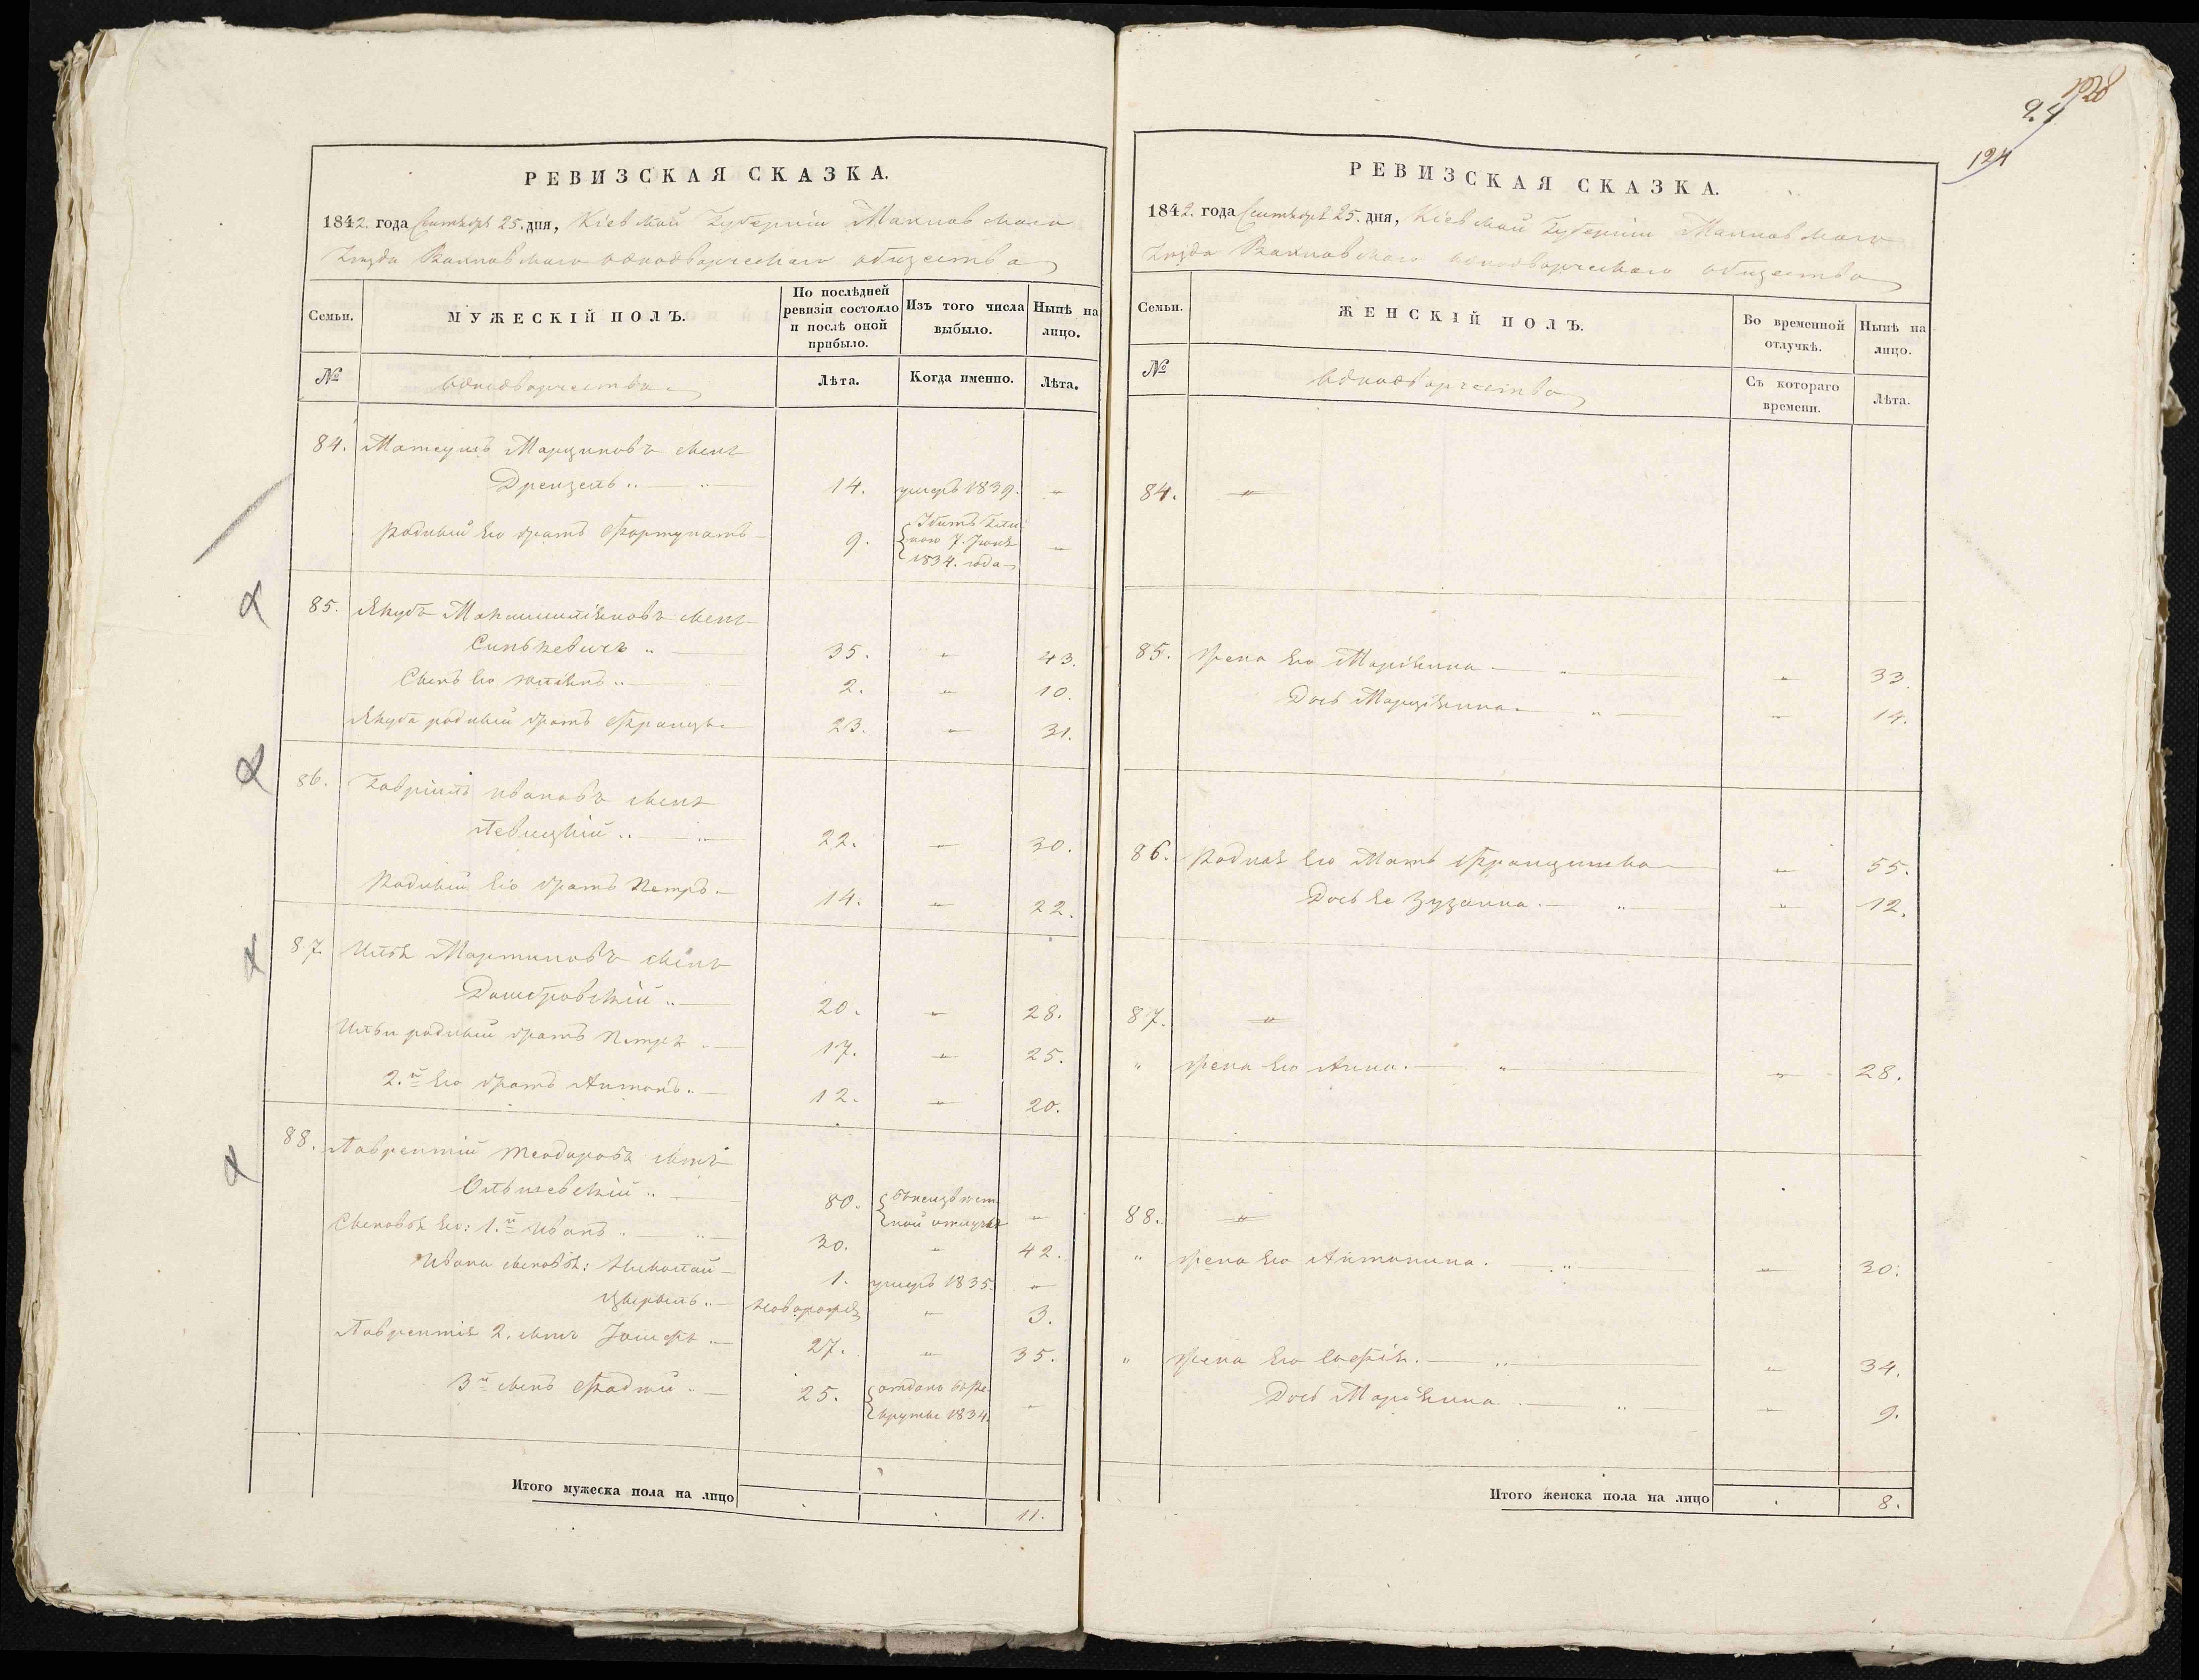 РЕВИЗСКАЯ СКАЗКА.
1842. года Сентября 25. дня, Кіевской Губерніи Махновскаго
Уезда Вахновскаго однодворческаго общества
Семьи.
МУЖЕСКІЙ ПОЛЪ.
По послѣдней ревизіи состояло и послѣ оной прибыло.
Изъ того числа выбыло.
Нынѣ на лицо.
№
однодворчества
Лѣта.
Когда именно.
Лѣта.
84. Матеушъ Марциновъ сынъ
14. умеръ 1839. "
Родный его братъ Фортунатъ
9. 7. Іюня 1834. года "
85. Якубъ Максимиліяновъ сынъ
Синькевичъ " 35. " 43.
Сынъ его Юліянъ " 2. " 10.
Якуба родный братъ Францъ 23. " 31.
86. Гавріилъ Ивановъ сынъ
Левицкій " 22. " 30.
Родный его братъ Петръ 14. " 22.
87. Илья Мартиновъ сынъ
Домбровскій " 20. " 28.
Ильи родный братъ Петръ 17. " 25.
2.й его братъ Антонъ 12. " 20.
88. Лаврентій Теодоровъ сынъ
Ольшевскій " 80. "
Сыновья его: 1.й Иванъ 30. " 42.
Ивана сыновья: Николай 1. умеръ 1835. "
новорожд " 3.
Лаврентія 2. сынъ Іосифъ 27. " 35.
3й сынъ 25. отданъ в Рекруты 1834. "
Итого мужеска пола на лицо 11.
128
94
124
РЕВИЗСКАЯ СКАЗКА.
1842. года Сентября 25. дня, Кіевской Губерніи Махновскаго
Уезда Вахновскаго однодворческаго общества
Семьи.
ЖЕНСКІЙ ПОЛЪ.
Во временной отлучкѣ.
Нынѣ на лицо.
№
однодворчества
Съ котораго времени.
Лѣта.
84. "
85. Жена его Маріянна " 33.
Дочь Марціянна " 14.
86. Родная его Мать Францишка " 55.
Дочь ее Зузанна " 12.
87. "
" Жена его Анна " 28.
88. "
" Жена его Антонина " 30.
" Жена его Софія " 34.
Дочь Маріянна " 9.
Итого женска пола на лицо 8.